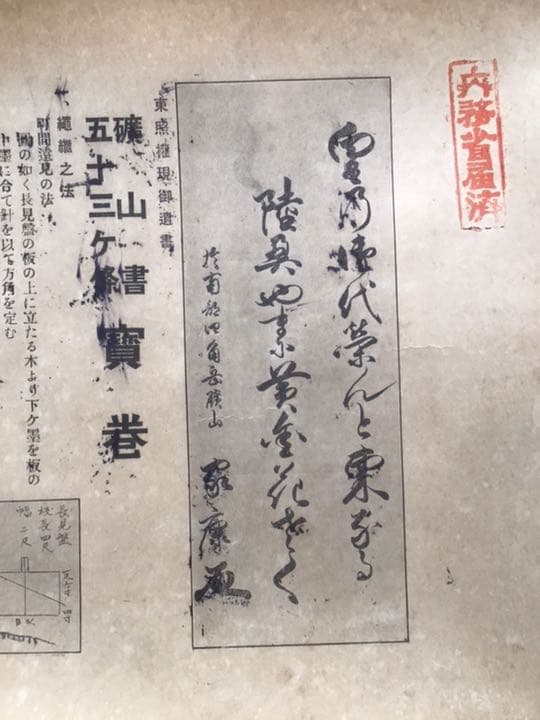 内務省届済
皇乃御代榮んと東なる
陸奥やまに黄金花さく
於南部四角岳勝山
家康
東照權現御遺書
礦山書
五十三ケ條
寶巻
繩繼之法
町間遠見の法
圖の如く長見盤の板の上に立たる木より下ケ墨を板の
中墨に合て針を以て方角を定む
長見盤
板長四尺
幅二尺